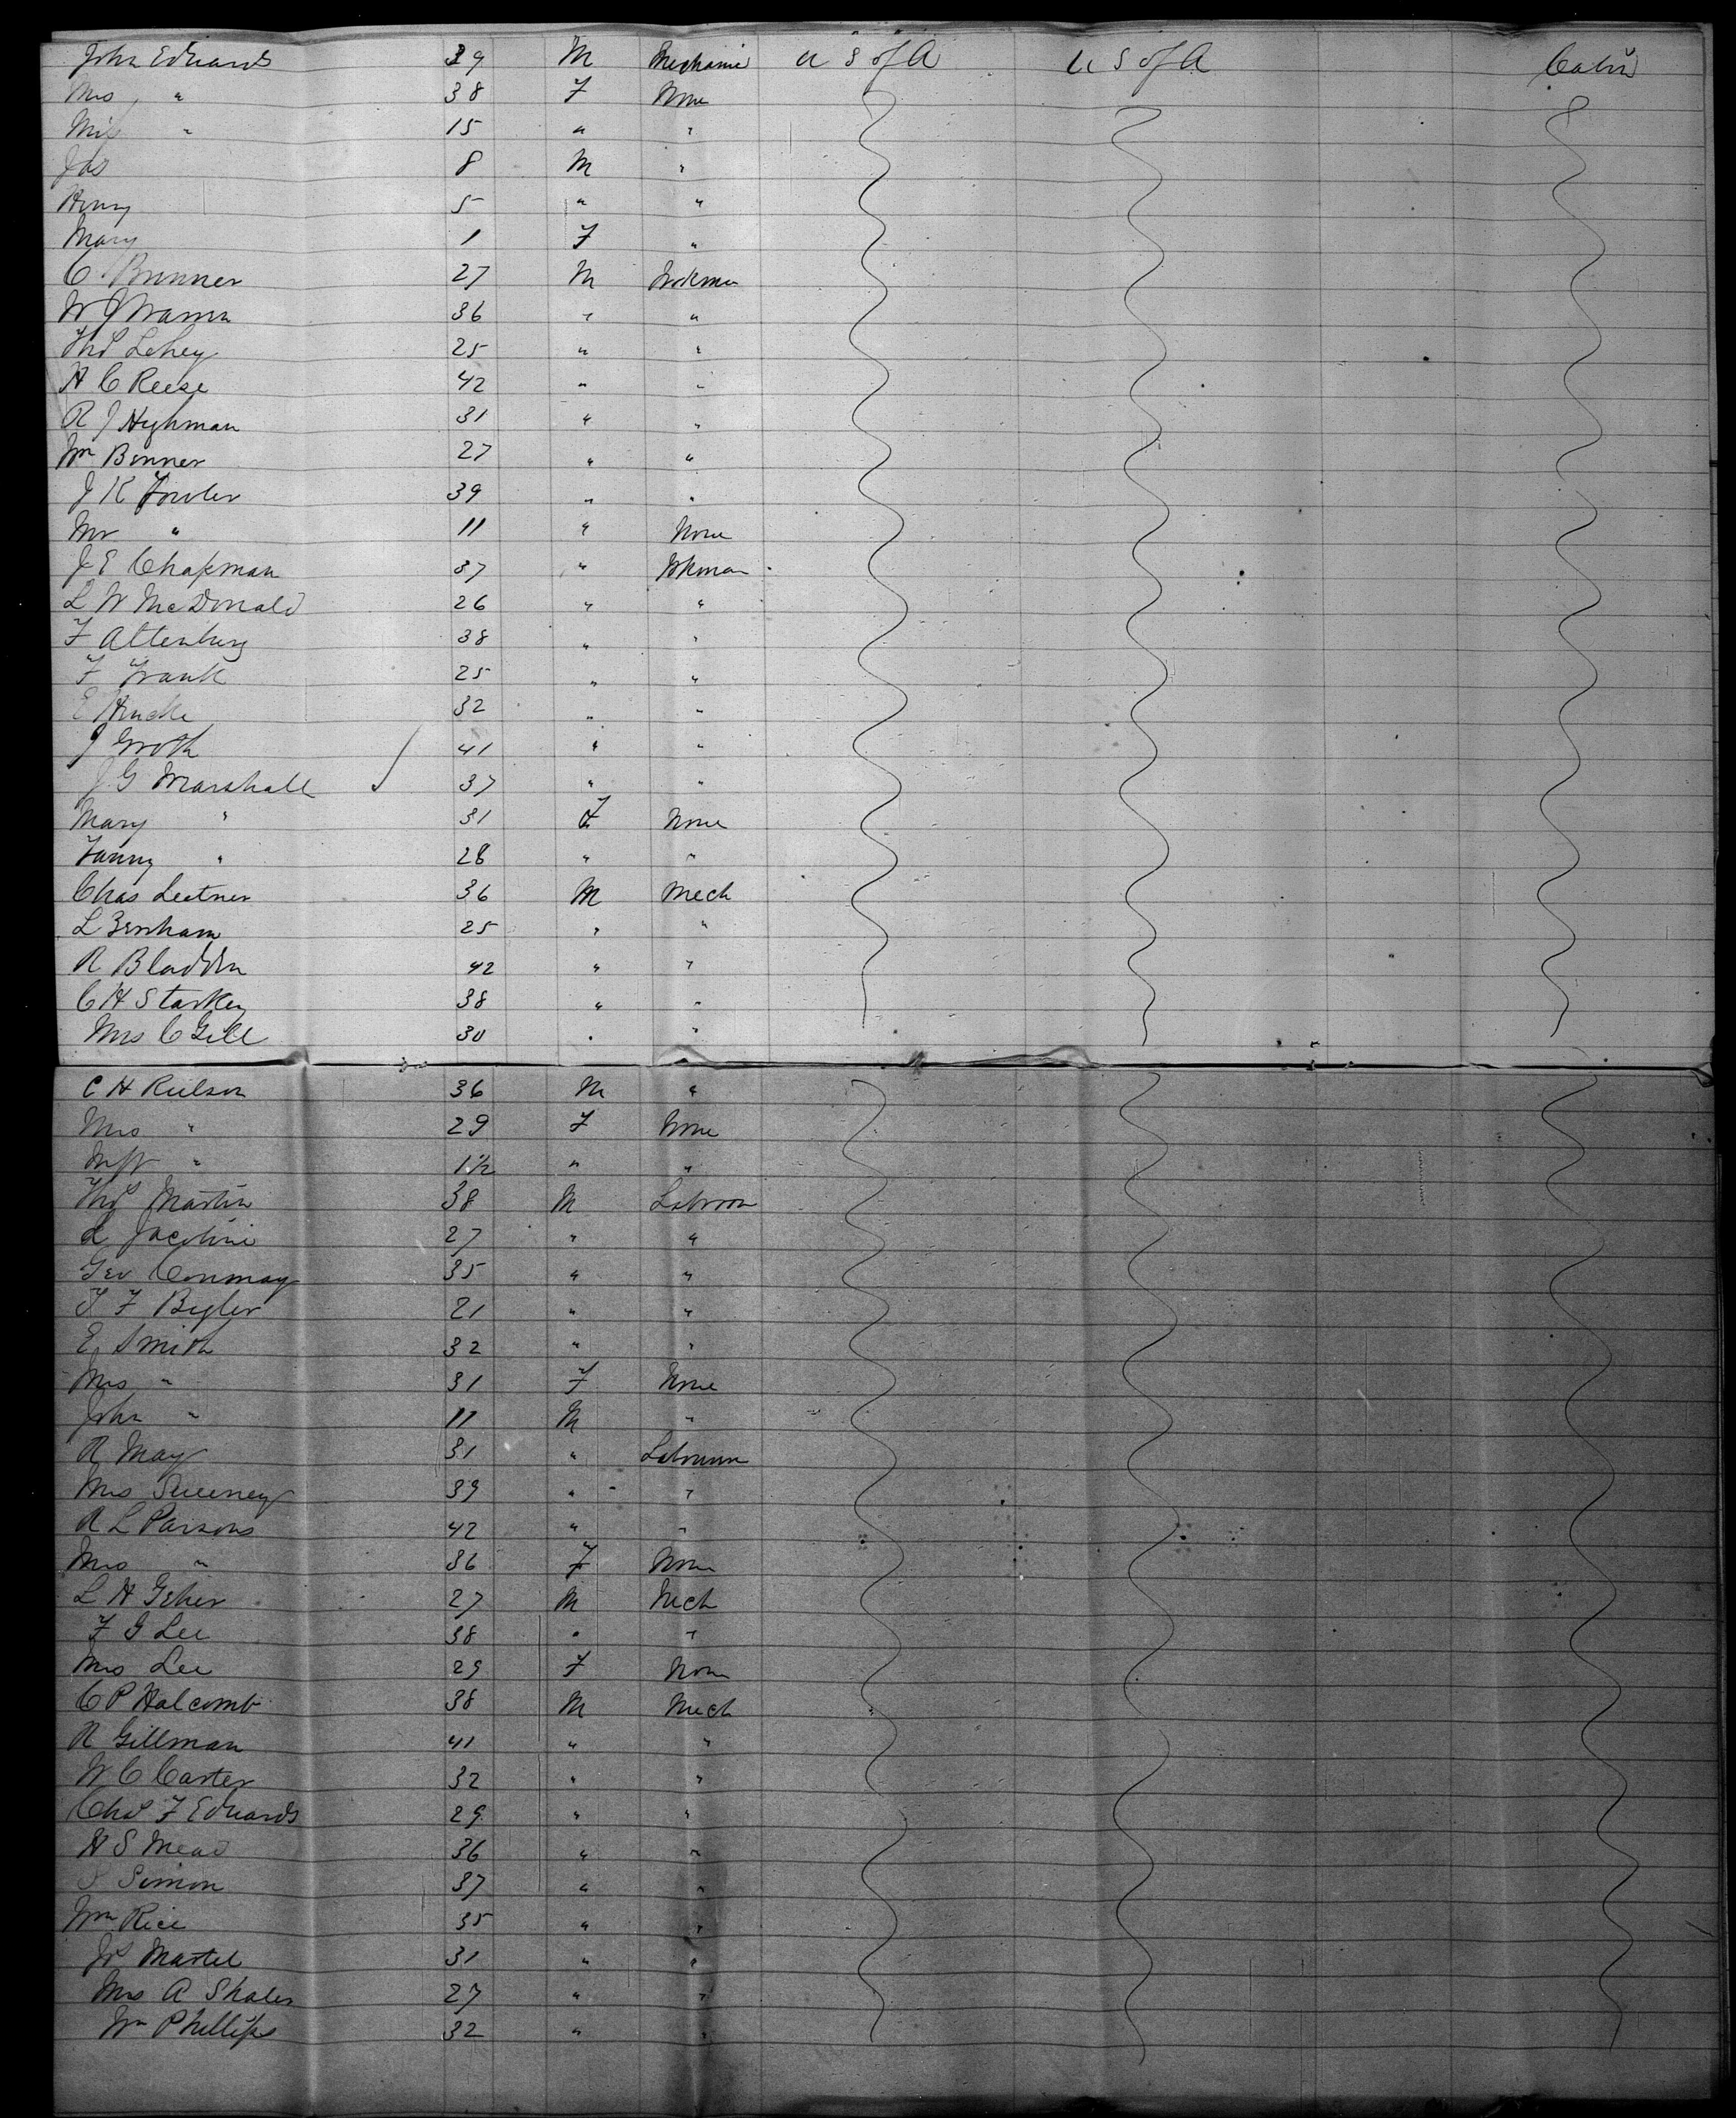 John Edwards 39 M Mechanic U S of A U S of A Cabin
Mrs " 38 F None
Miss " 15 " "
Jas 8 M "
Henry 5 " "
Mary 1 F "
C Brunner 27 M Workman
W J 36 " "
Thos Lehey 25 " "
H C Reese 42 " "
R J Highman 31 " "
Wm Benner 27 " "
J K Fowler 39 " "
Mr " 11 " None
J E Chapman 37 " Wkman
L W McDonald 26 " "
F Attenburg 38 " "
F Frank 25 " "
E 32 " "
J Groth 41 " "
J G Marshall 37 " "
Mary " 31 F None
Fanny " 28 " "
Chas Leetner 36 M Mech
L 25 " "
R Bladden 42 " "
C H Starkey 38 " "
Mrs C Gill 30 " "
C H Rielson 36 M "
Mrs " 29 F None
" 1½ " "
Thos Martin 38 M
L 27 " "
Geo 35 " "
T F Bigler 21 " "
E Smith 32 " "
Mrs " 31 F None
John " 11 M "
R May 31 "
Mrs Sweeney 39 " "
R L Parsons 42 " "
Mrs " 36 F None
L H Geher 27 M Mech
F G Lee 38 " "
Mrs Lee 29 F None
C P Halcomb 38 M Mech
R Gillman 41 " "
W C Carter 32 " "
Chas F Edwards 29 " "
H S Mead 36 " "
S Simon 37 " "
Wm Rice 35 " "
Martel 31 " "
Mrs A Skales 27 " "
Wm Phillips 32 " "